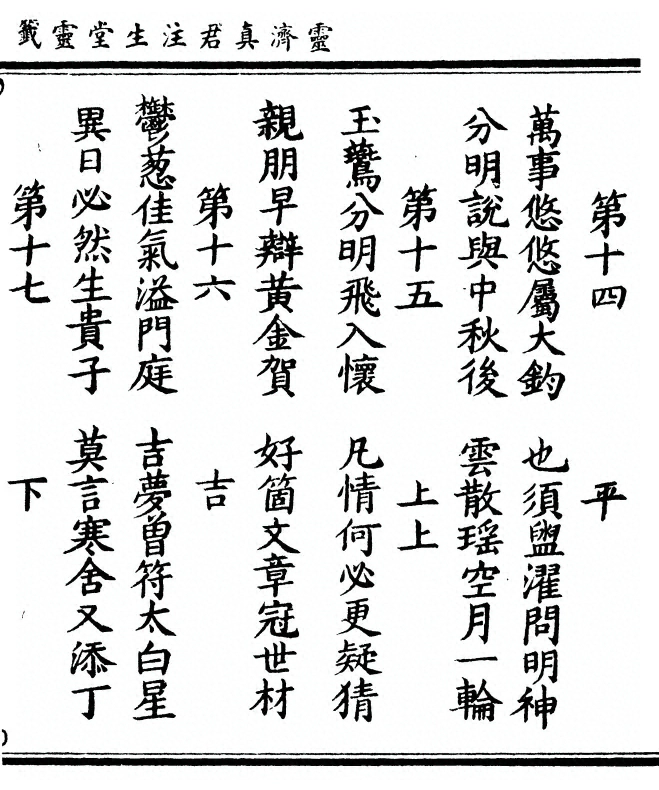 靈濟真君注生堂靈籤
第十四 平
萬事悠悠屬大鈞 也須盥濯問明神
分明說與中秋後 雲散瑶空月一輪
第十五 上上
玉鷰分明飛入懷 凡情何必更疑猜
親朋早辦黃金賀 好箇文章冠世材
第十六 吉
鬱葱佳氣溢門庭 吉夢曾符太白星
異日必然生貴子 莫言寒舍又添丁
第十七 下